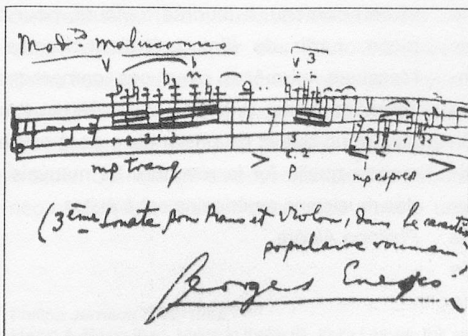 Mod to malinconico
3
3 3 3
mp tranq
p
(3ème Sonate pour Piano et Violon, dans le caractère
populaire roumain
Georges Enesco